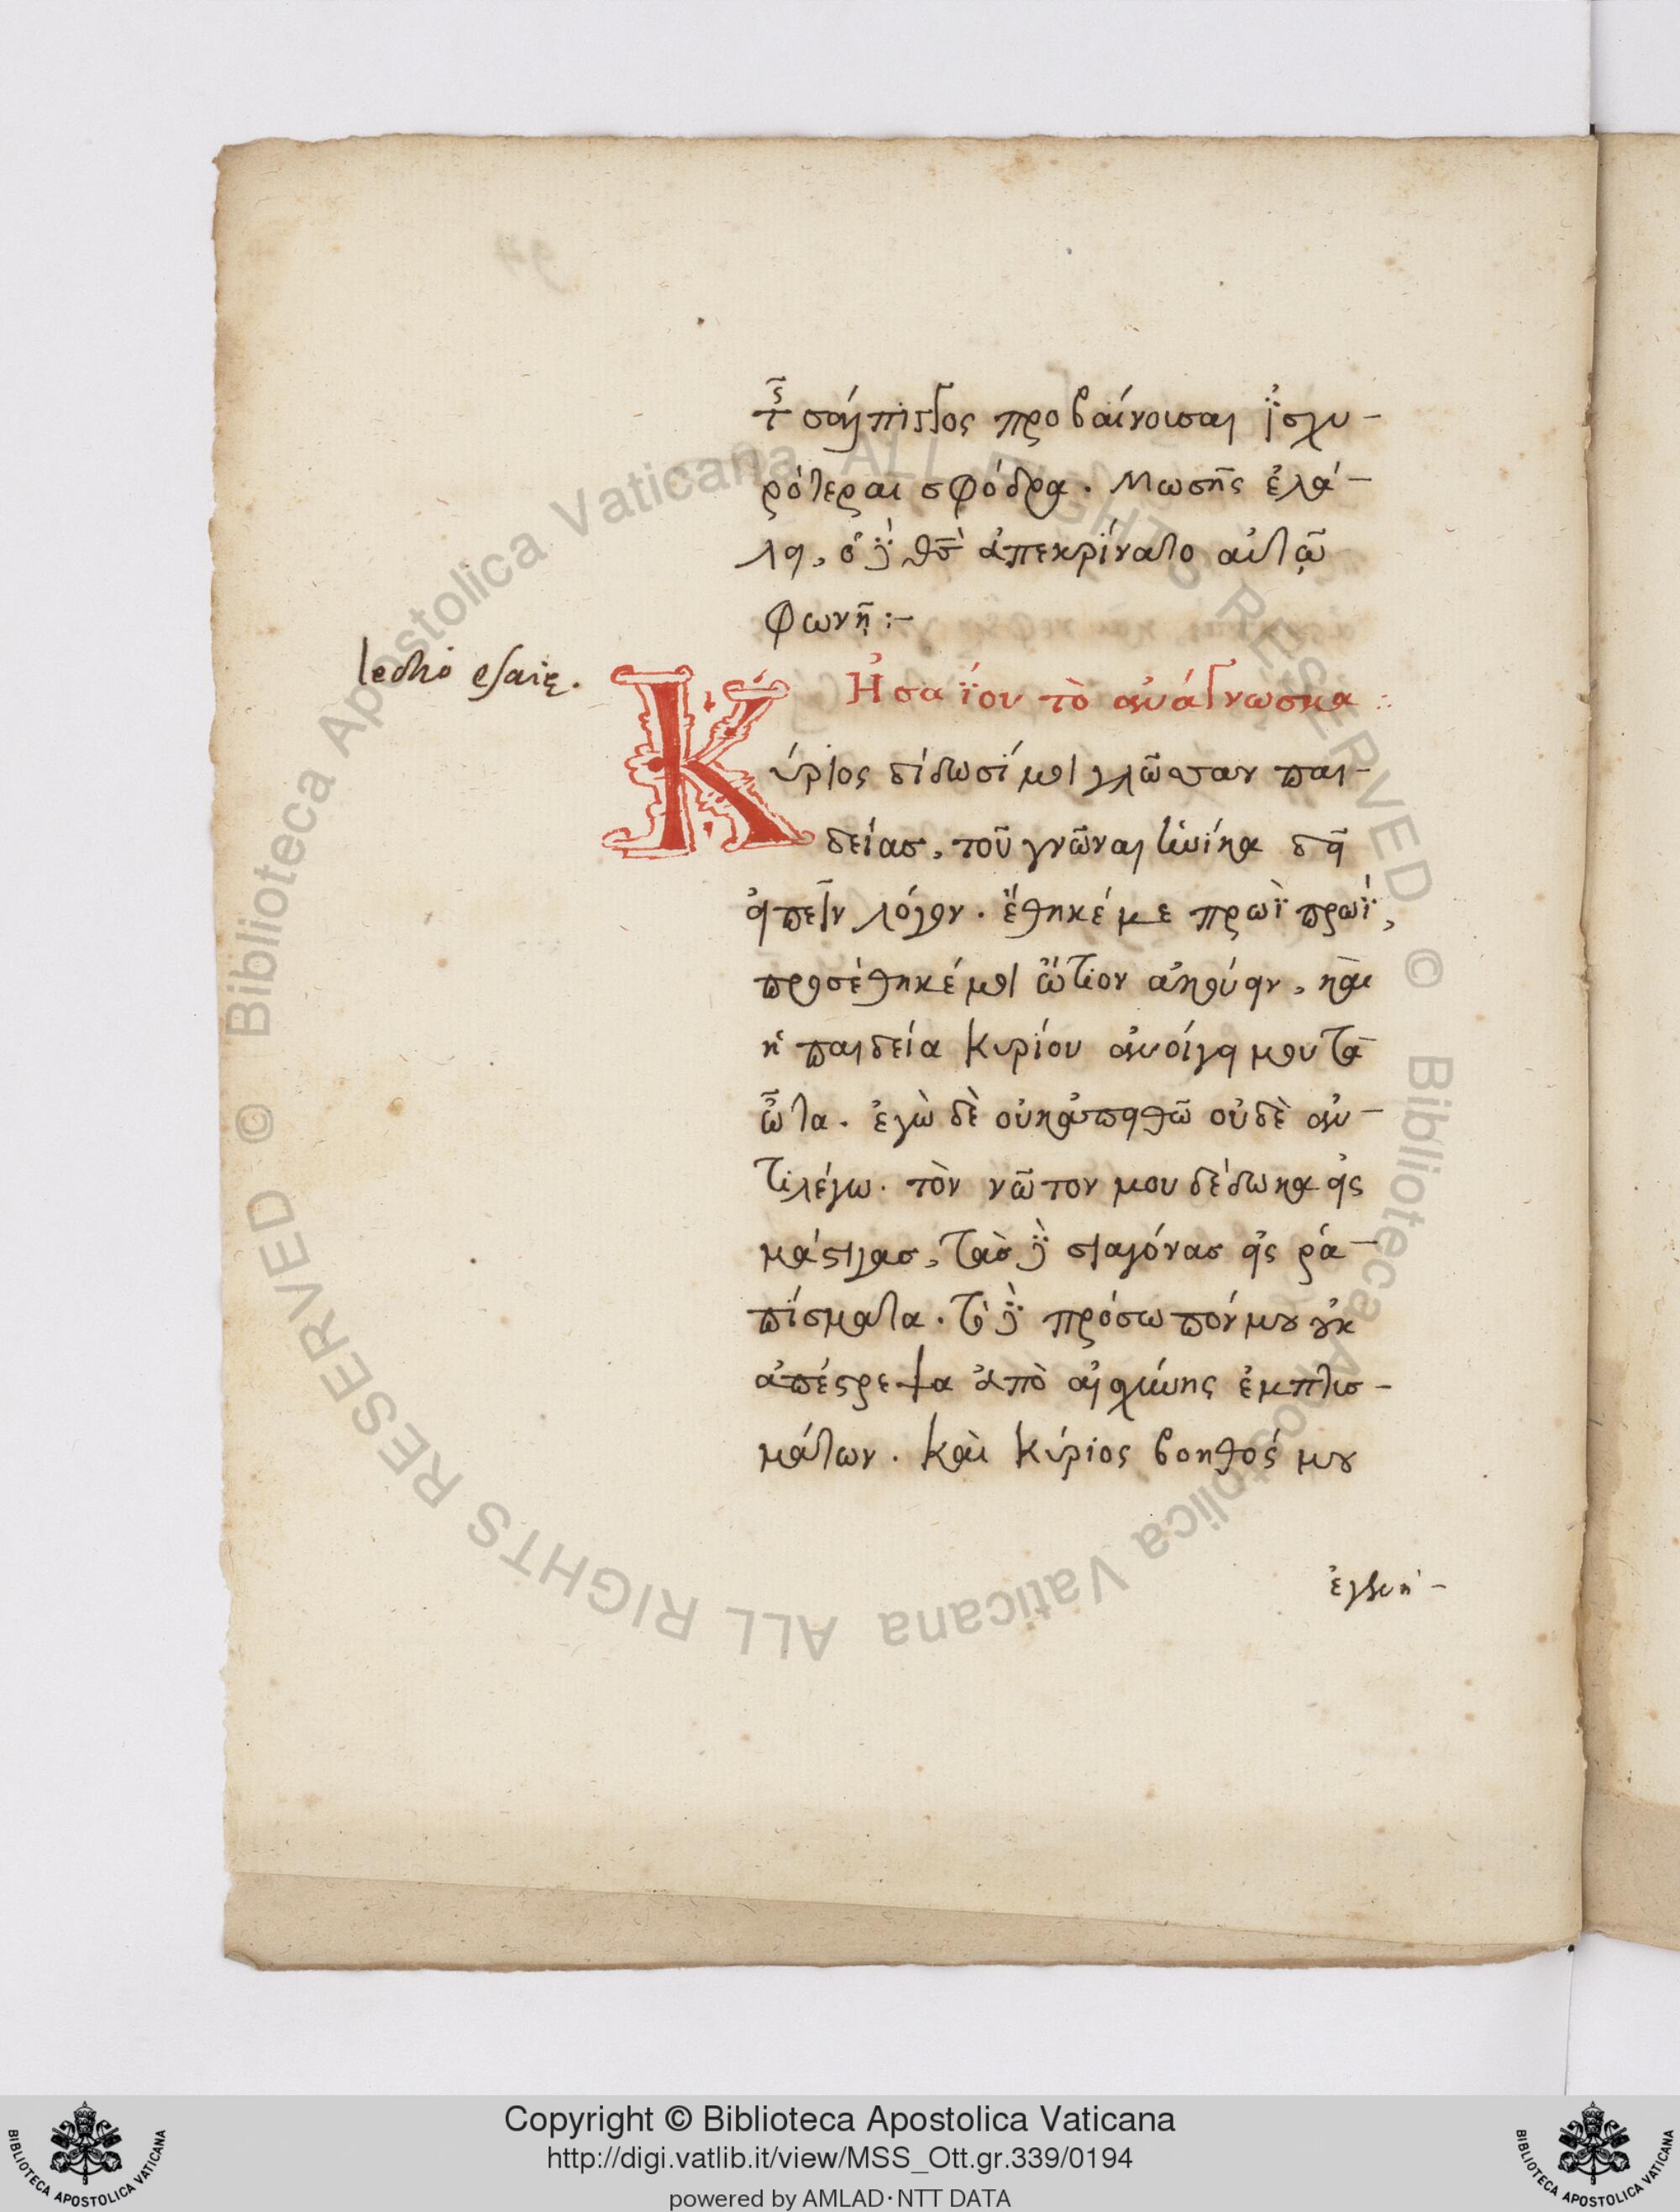 τῆς σάλπιγγος προβαίνουσαι ἰσχυ-
ρότεραι σφόδρα. Μωσῆς ἐλά-
λει, ὁ δὲ θς̅ ἀπεκρίνατο αὐτῷ
φωνῇ:-
lectio esaię.
Ἠσαΐου τὸ ἀνάγνωσμα:
Κύριος δίδωσί μοι γλῶσσαν παι-
δείας, τοῦ γνῶναι ἡνίκα δεῖ
εἰπεῖν λόγον. ἔθηκέ με πρωῒ πρωΐ,
προσέθηκέ μοι ὠτίον ἀκούειν, καὶ
ἡ παιδεία κυρίου ἀνοίγει μου τὰ
ὦτα. ἐγὼ δὲ οὐκ ἀπειθῶ οὐδὲ ἀν-
τιλέγω. τὸν νῶτον μου δέδωκα εἰς
μάστιγας, τὰς δὲ σιαγόνας εἰς ρά-
πίσματα. τὸ δὲ πρόσωπόν μου οὐκ
ἀπέστρεψα ἀπὸ αἰσχύνης ἐμπτυσ-
μάτων. καὶ Κύριος βοηθός μου
ἐγενή-
Copyright © Biblioteca Apostolica Vaticana
http://digi.vatlib.it/view/MSS_Ott.gr.339/0194
powered by AMLAD·NTT DATA